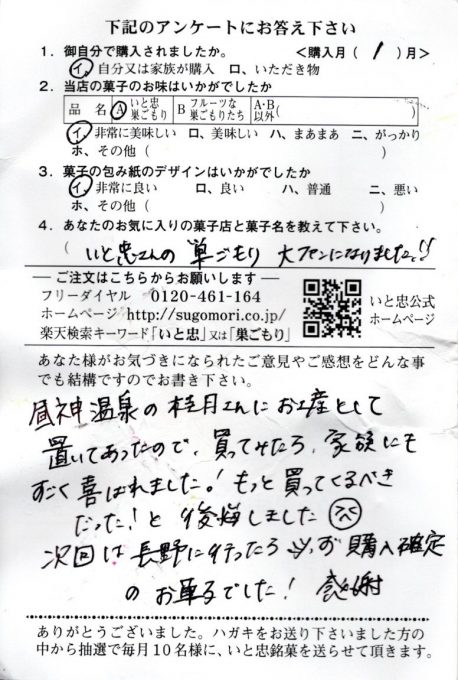 下記のアンケートにお答え下さい
1. 御自分で購入されましたか。 <購入月( 1 )月>
イ、自分又は家族が購入 ロ、いただき物
2. 当店の菓子のお味はいかがでしたか
品 名 A いと忠巣ごもり B フルーツな巣ごもりたち A・B以外( )
イ、非常に美味しい ロ、美味しい ハ、まあまあ ニ、がっかり
ホ、その他( )
3. 菓子の包み紙のデザインはいかがでしたか
イ、非常に良い ロ、良い ハ、普通 ニ、悪い
ホ、その他( )
4. あなたのお気に入りの菓子店と菓子名を教えて下さい。
( いと忠さんの 巣ごもり 大ファンになりました!!
ご注文はこちらからお願いします
フリーダイヤル 0120-461-164
ホームページ http://sugomori.co.jp/
楽天検索キーワード「いと忠」又は「巣ごもり」
いと忠公式
ホームページ
あなた様がお気づきになられたご意見やご感想をどんな事
でも結構ですのでお書き下さい。
昼神温泉の桂月さんにお土産として
置いてあったので、買ってみたら、家族にも
すごく喜ばれました!もっと買ってくるべき
だった!と後悔しました
次回は長野に行ったら 必ず購入確定
のお菓子でした! 感謝
ありがとうございました。ハガキをお送り下さいました方の
中から抽選で毎月10名様に、いと忠銘菓を送らせて頂きます。